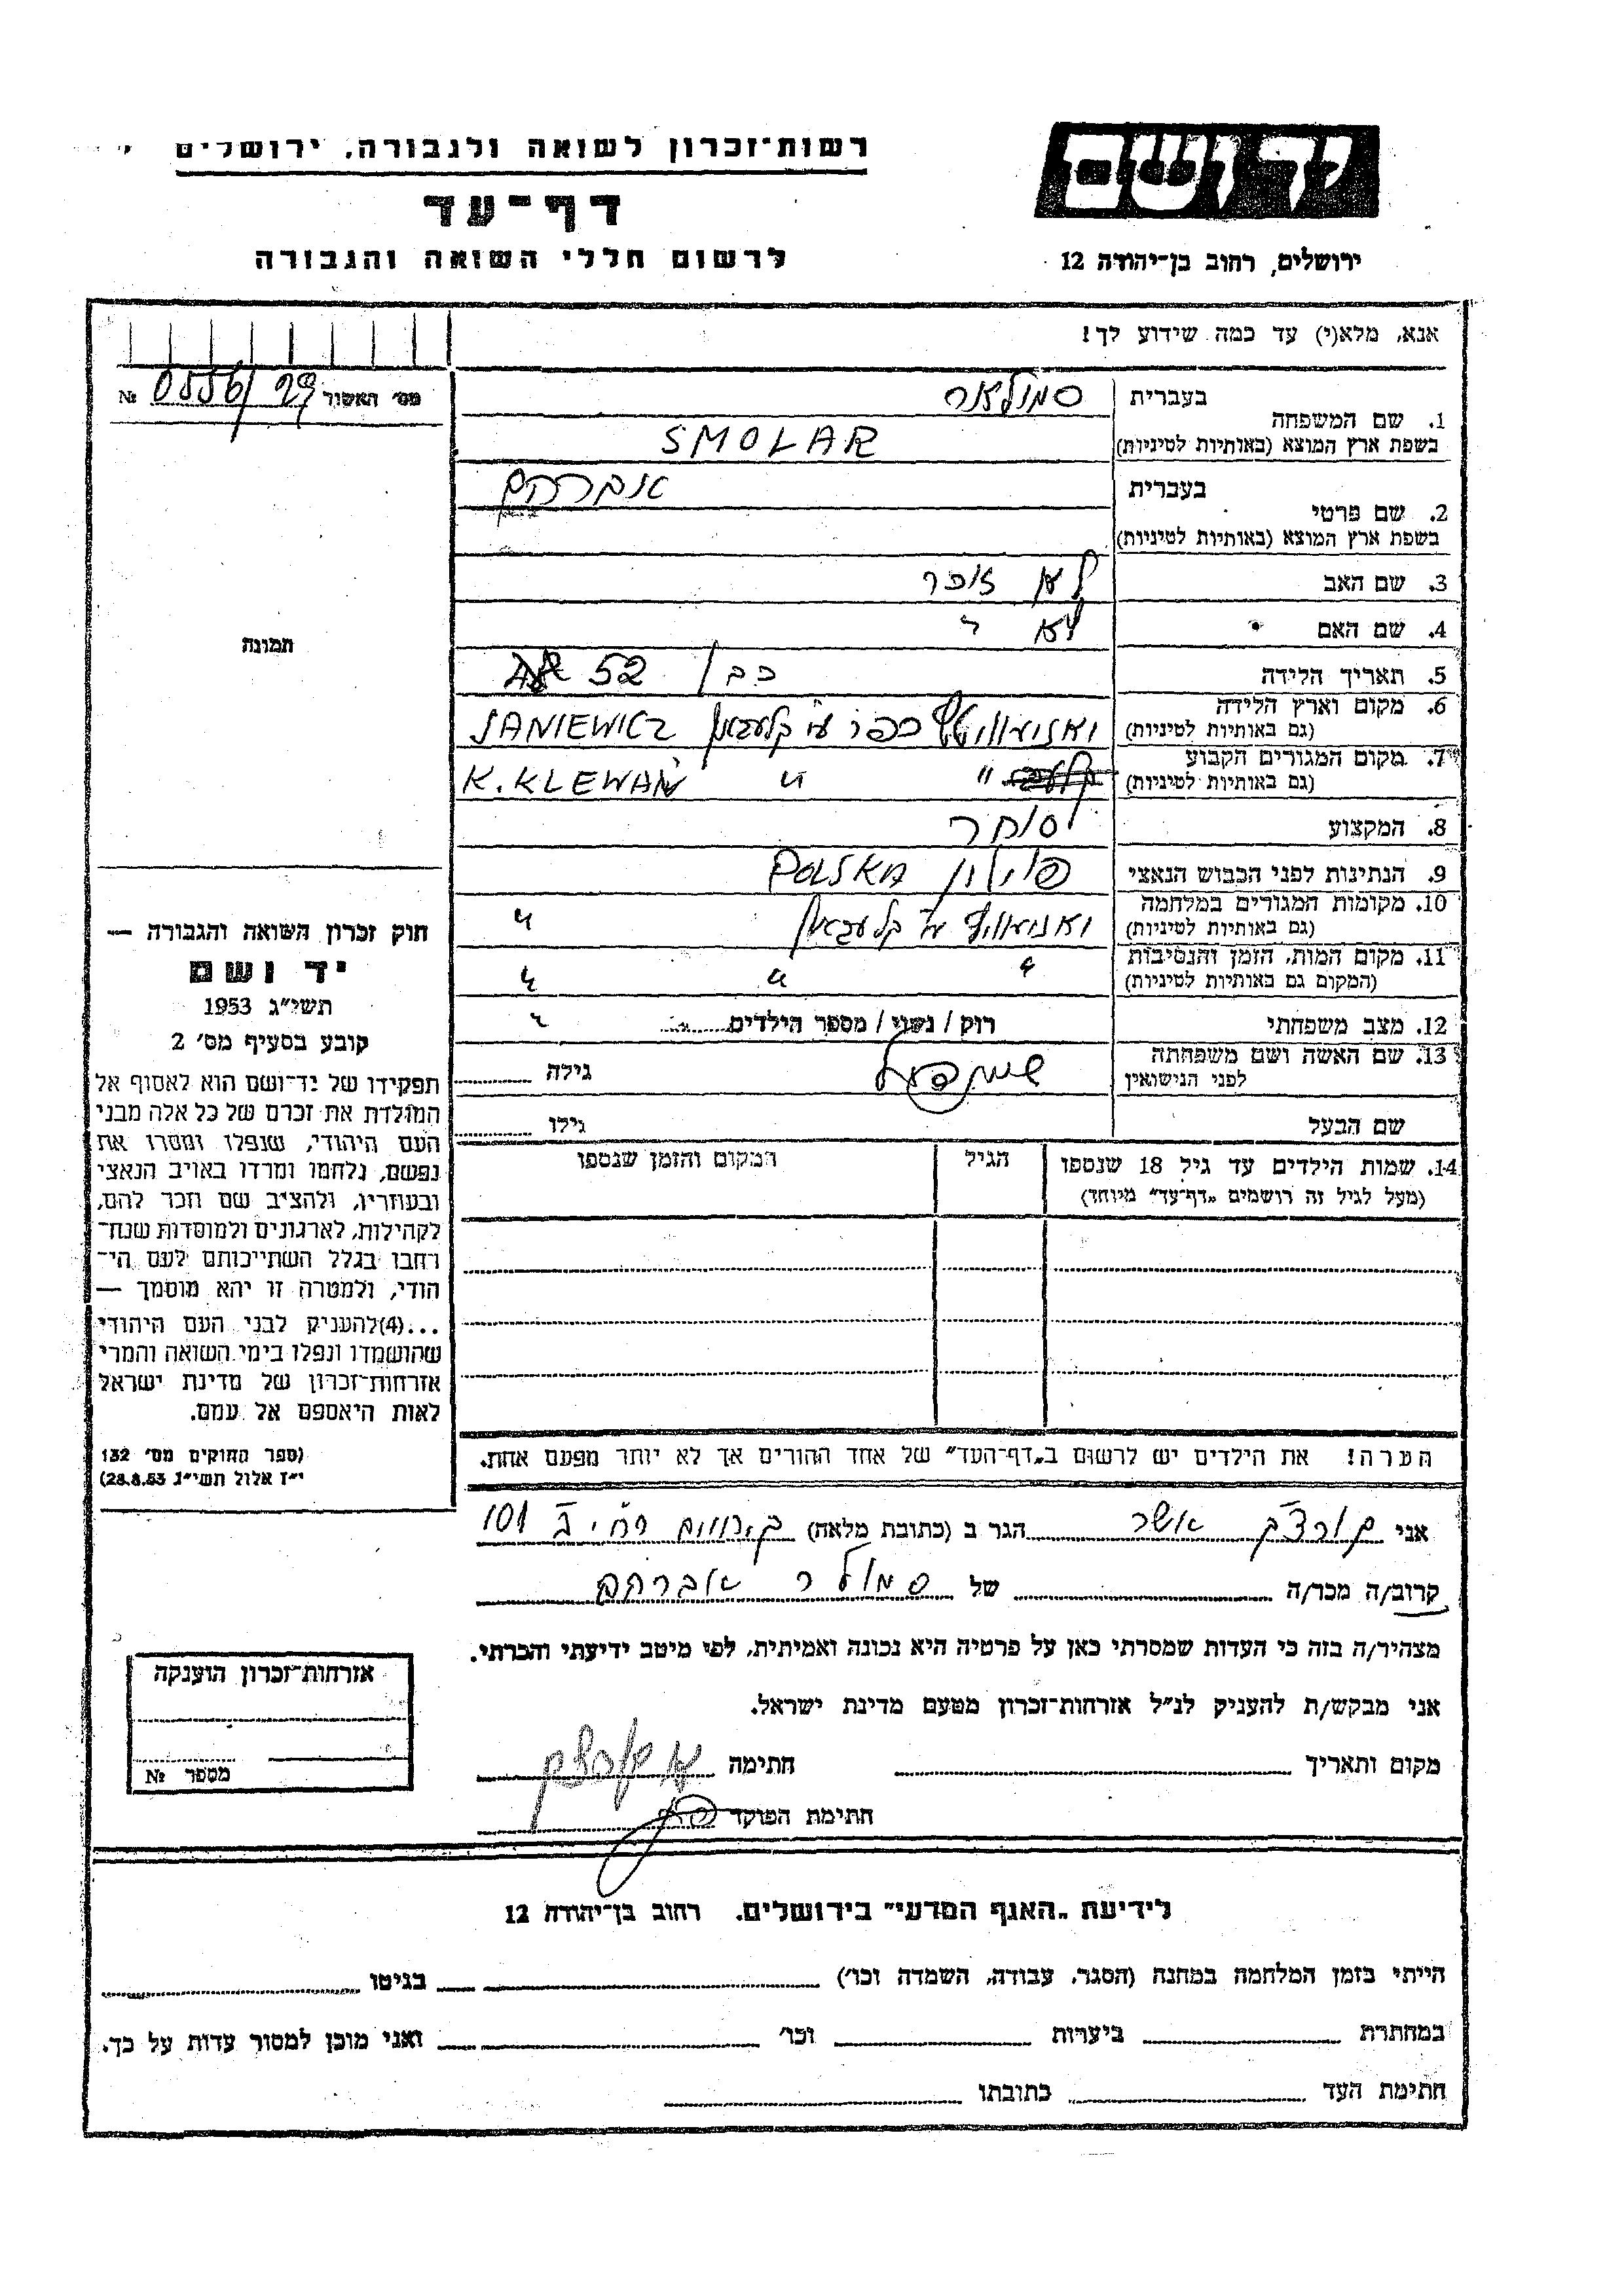 רשות־זכרון לשואה ולגבורה, ירושלים
דף־עד
לרשום חללי השואה והגבורה
יד ושם
ירושלים, רחוב בן־יהודה 12
אנא, מלא(י) עד כמה שידוע לך!
מס' האשור 0556/29 №
1. שם המשפחה
בעברית סמולאר
בשפת ארץ המוצא (באותיות לטיניות) SMOLAR
2. שם פרטי
בעברית אברהם
בשפת ארץ המוצא (באותיות לטיניות)
3. שם האב לא זוכר
4. שם האם לא "
5. תאריך הלידה בן 52
6. מקום וארץ הלידה
(גם באותיות לטיניות) JANIEWICZ
7. מקום המגורים הקבוע
(גם באותיות לטיניות) " " K. KLEWAŃ
8. המקצוע סוחר
9. הנתינות לפני הכבוש הנאצי פולין POLSKA
10. מקומות המגורים במלחמה
(גם באותיות לטיניות) "
11. מקום המות, הזמן והנסיבות
(המקום גם באותיות לטיניות) " " "
12. מצב משפחתי רוק / נשוי / מספר הילדים "
13. שם האשה ושם משפחתה
לפני הנישואין גילה
שם הבעל גילו
14. שמות הילדים עד גיל 18 שנספו
(מעל לגיל זה רושמים "דף־עד" מיוחד)
הגיל
המקום והזמן שנספו
הערה! את הילדים יש לרשום ב"דף־העד" של אחד ההורים אך לא יותר מפעם אחת.
תמונה
חוק זכרון השואה והגבורה —
יד ושם
תשי"ג 1953
קובע בסעיף מס' 2
תפקידו של יד־ושם הוא לאסוף אל
המולדת את זכרם של כל אלה מבני
העם היהודי, שנפלו ומסרו את
נפשם, נלחמו ומרדו באויב הנאצי
ובעוזריו, ולהציב שם וזכר להם,
לקהילות, לארגונים ולמוסדות שנח־
רחבו בגלל השתייכותם לעם הי־
הודי, ולמטרה זו יהא מוסמך —
...(4)להעניק לבני העם היהודי
שהושמדו ונפלו בימי השואה והמרי
אזרחות־זכרון של מדינת ישראל
לאות היאספם אל עמם.
(ספר החוקים מס' 132
י"ז אלול תשי"ג 28.8.53)
אני אשר הגר ב (כתובת מלאה) 101
קרוב/ה מכר/ה של סמולר אברהם
מצהיר/ה בזה כי העדות שמסרתי כאן על פרטיה היא נכונה ואמיתית, לפי מיטב ידיעתי והכרתי.
אני מבקש/ת להעניק לנ"ל אזרחות־זכרון מטעם מדינת ישראל.
מקום ותאריך חתימה
חתימת הפוקד
אזרחות־זכרון הוענקה
מספר №
לידיעת "האגף המדעי" בירושלים, רחוב בן־יהודה 12
הייתי בזמן המלחמה במחנה (הסגר, עבודה, השמדה וכו') בגיטו
במחתרת ביערות וכו' ואני מוכן למסור עדות על כך.
חתימת העד כתובתו